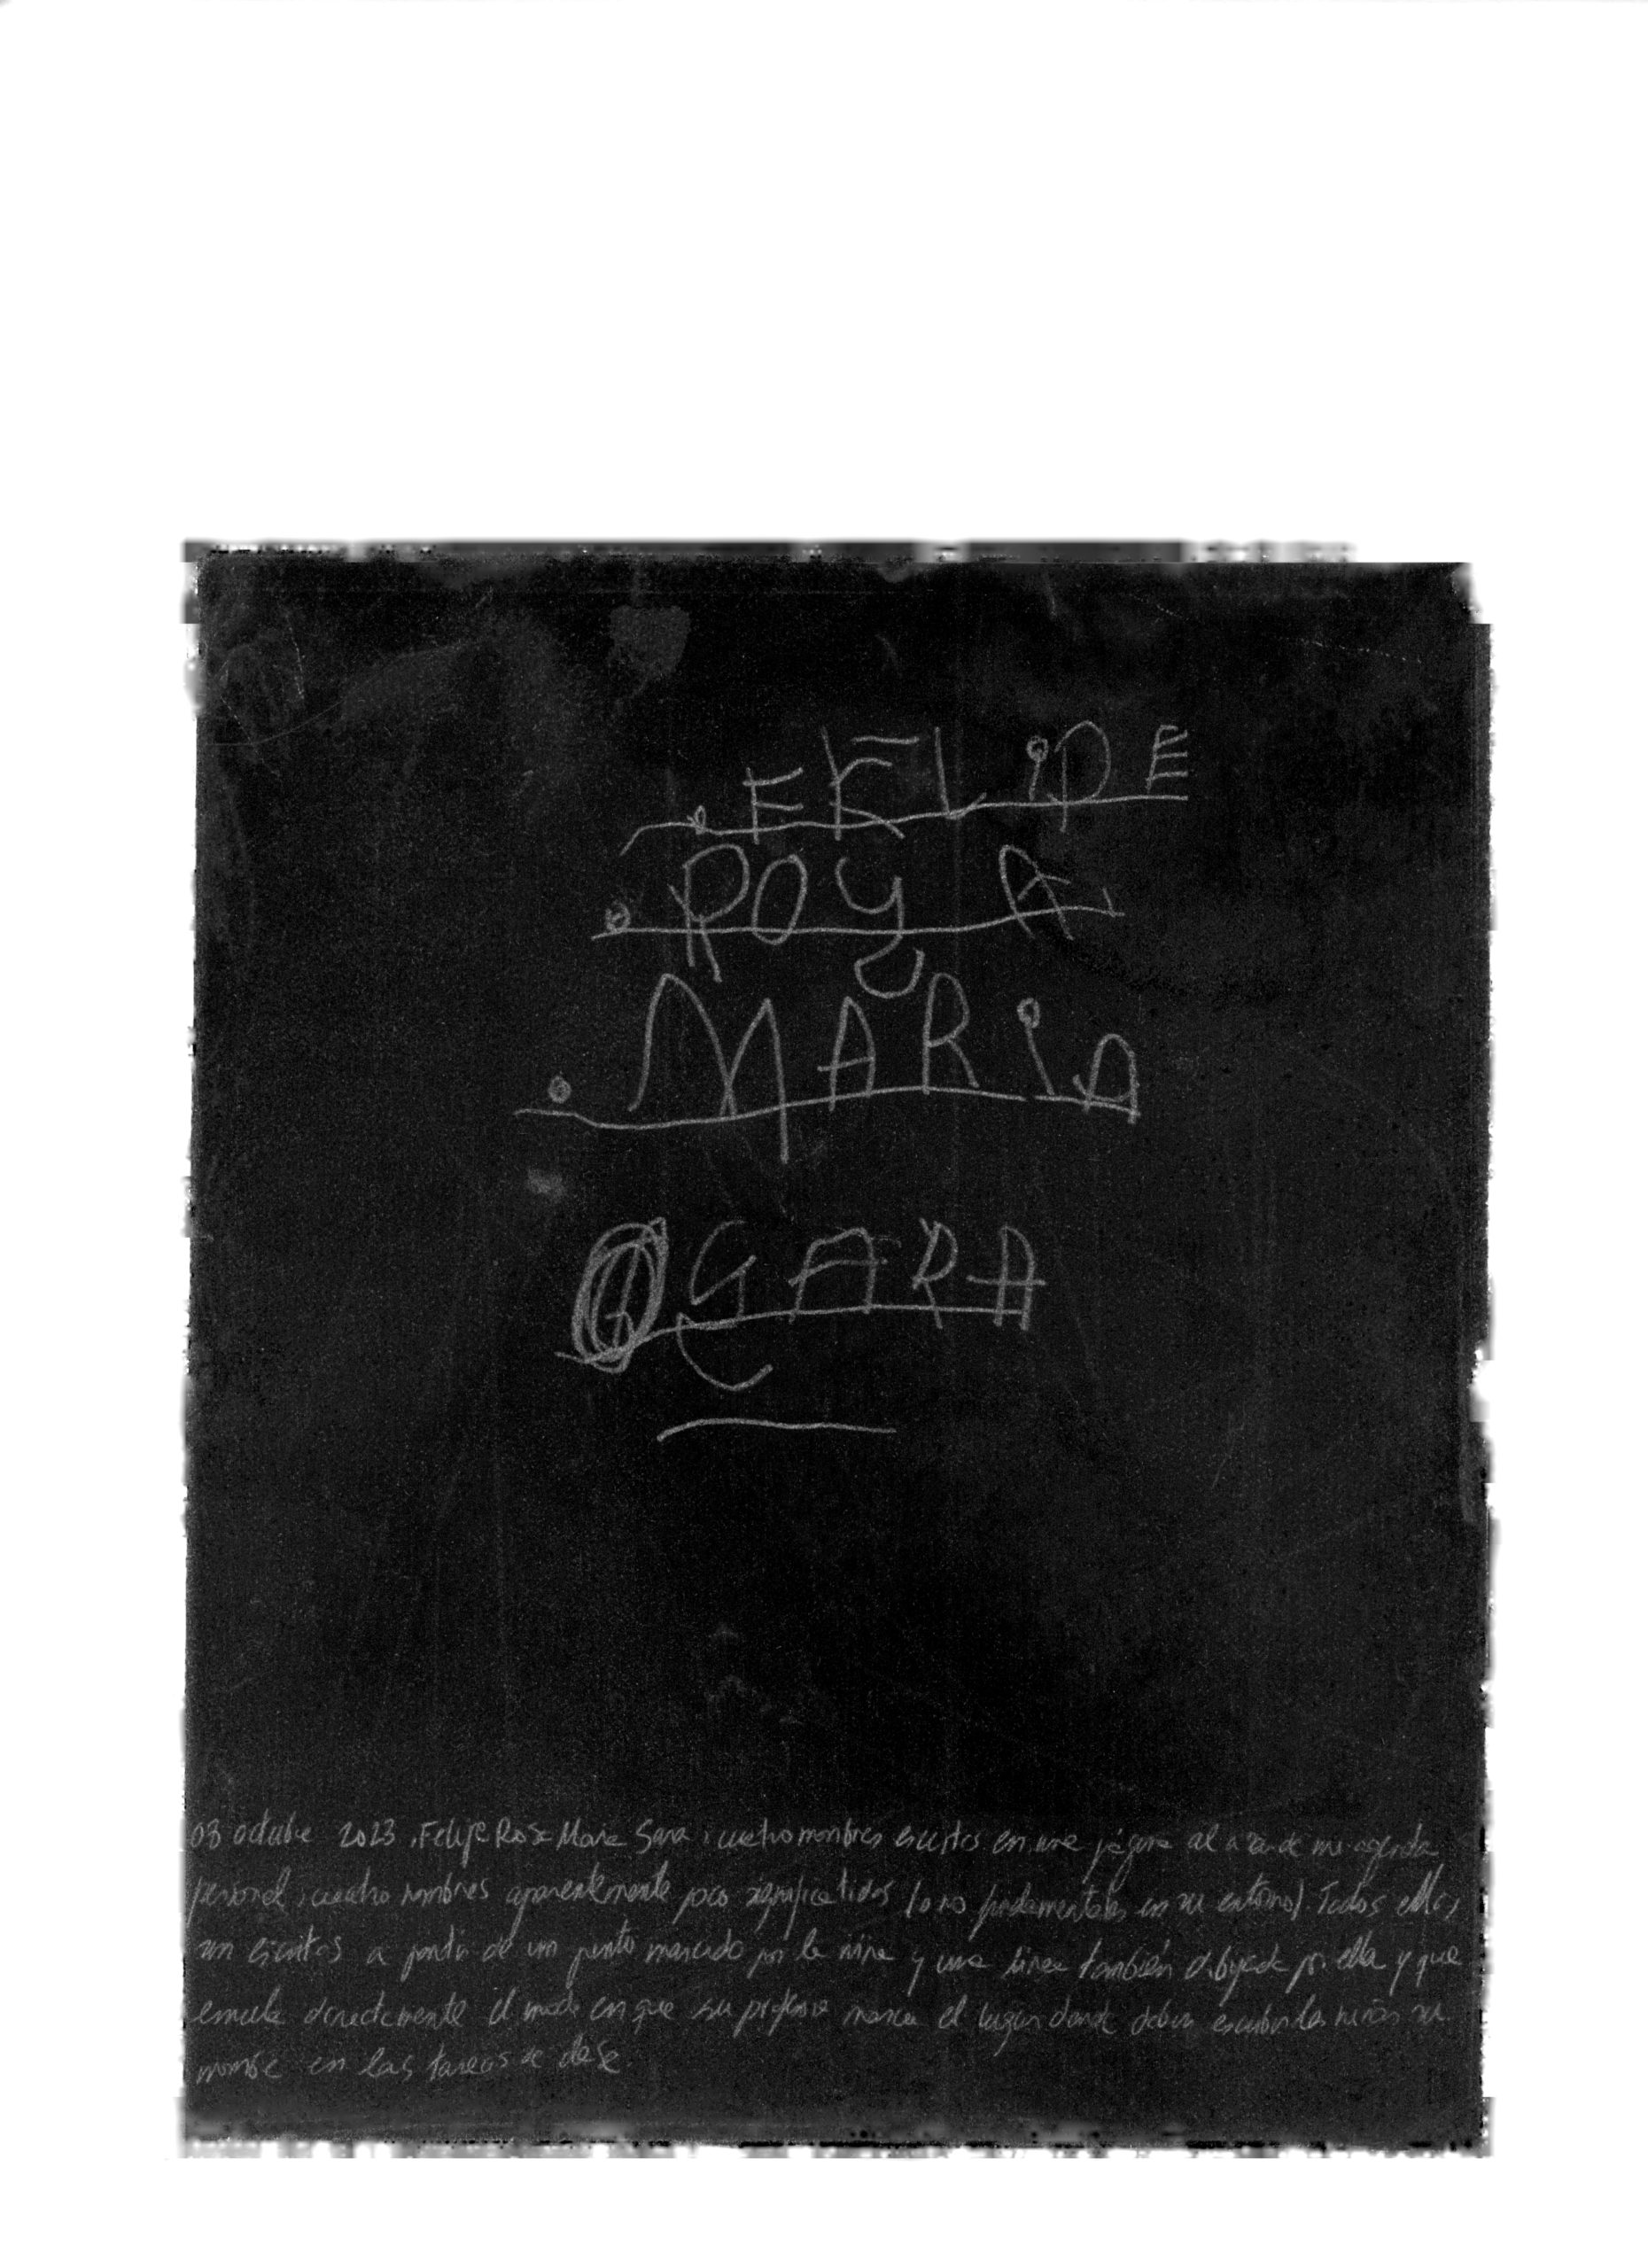 .FELIPE
.ROY A
.MARIA
GARA
03 octubre 2023. Felipe Rosa Maria Sara: cuatro nombres escritos en una página al azar de mi agenda
personal; cuatro nombres aparentemente poco significativos (o no fundamentales en su entorno). Todos ellos
son escritos a partir de un punto marcado por la niña y una línea también dibujada por ella y que
emula directamente el modo en que su profesora marca el lugar donde deben escribir los niños su
nombre en las tareas de clase.